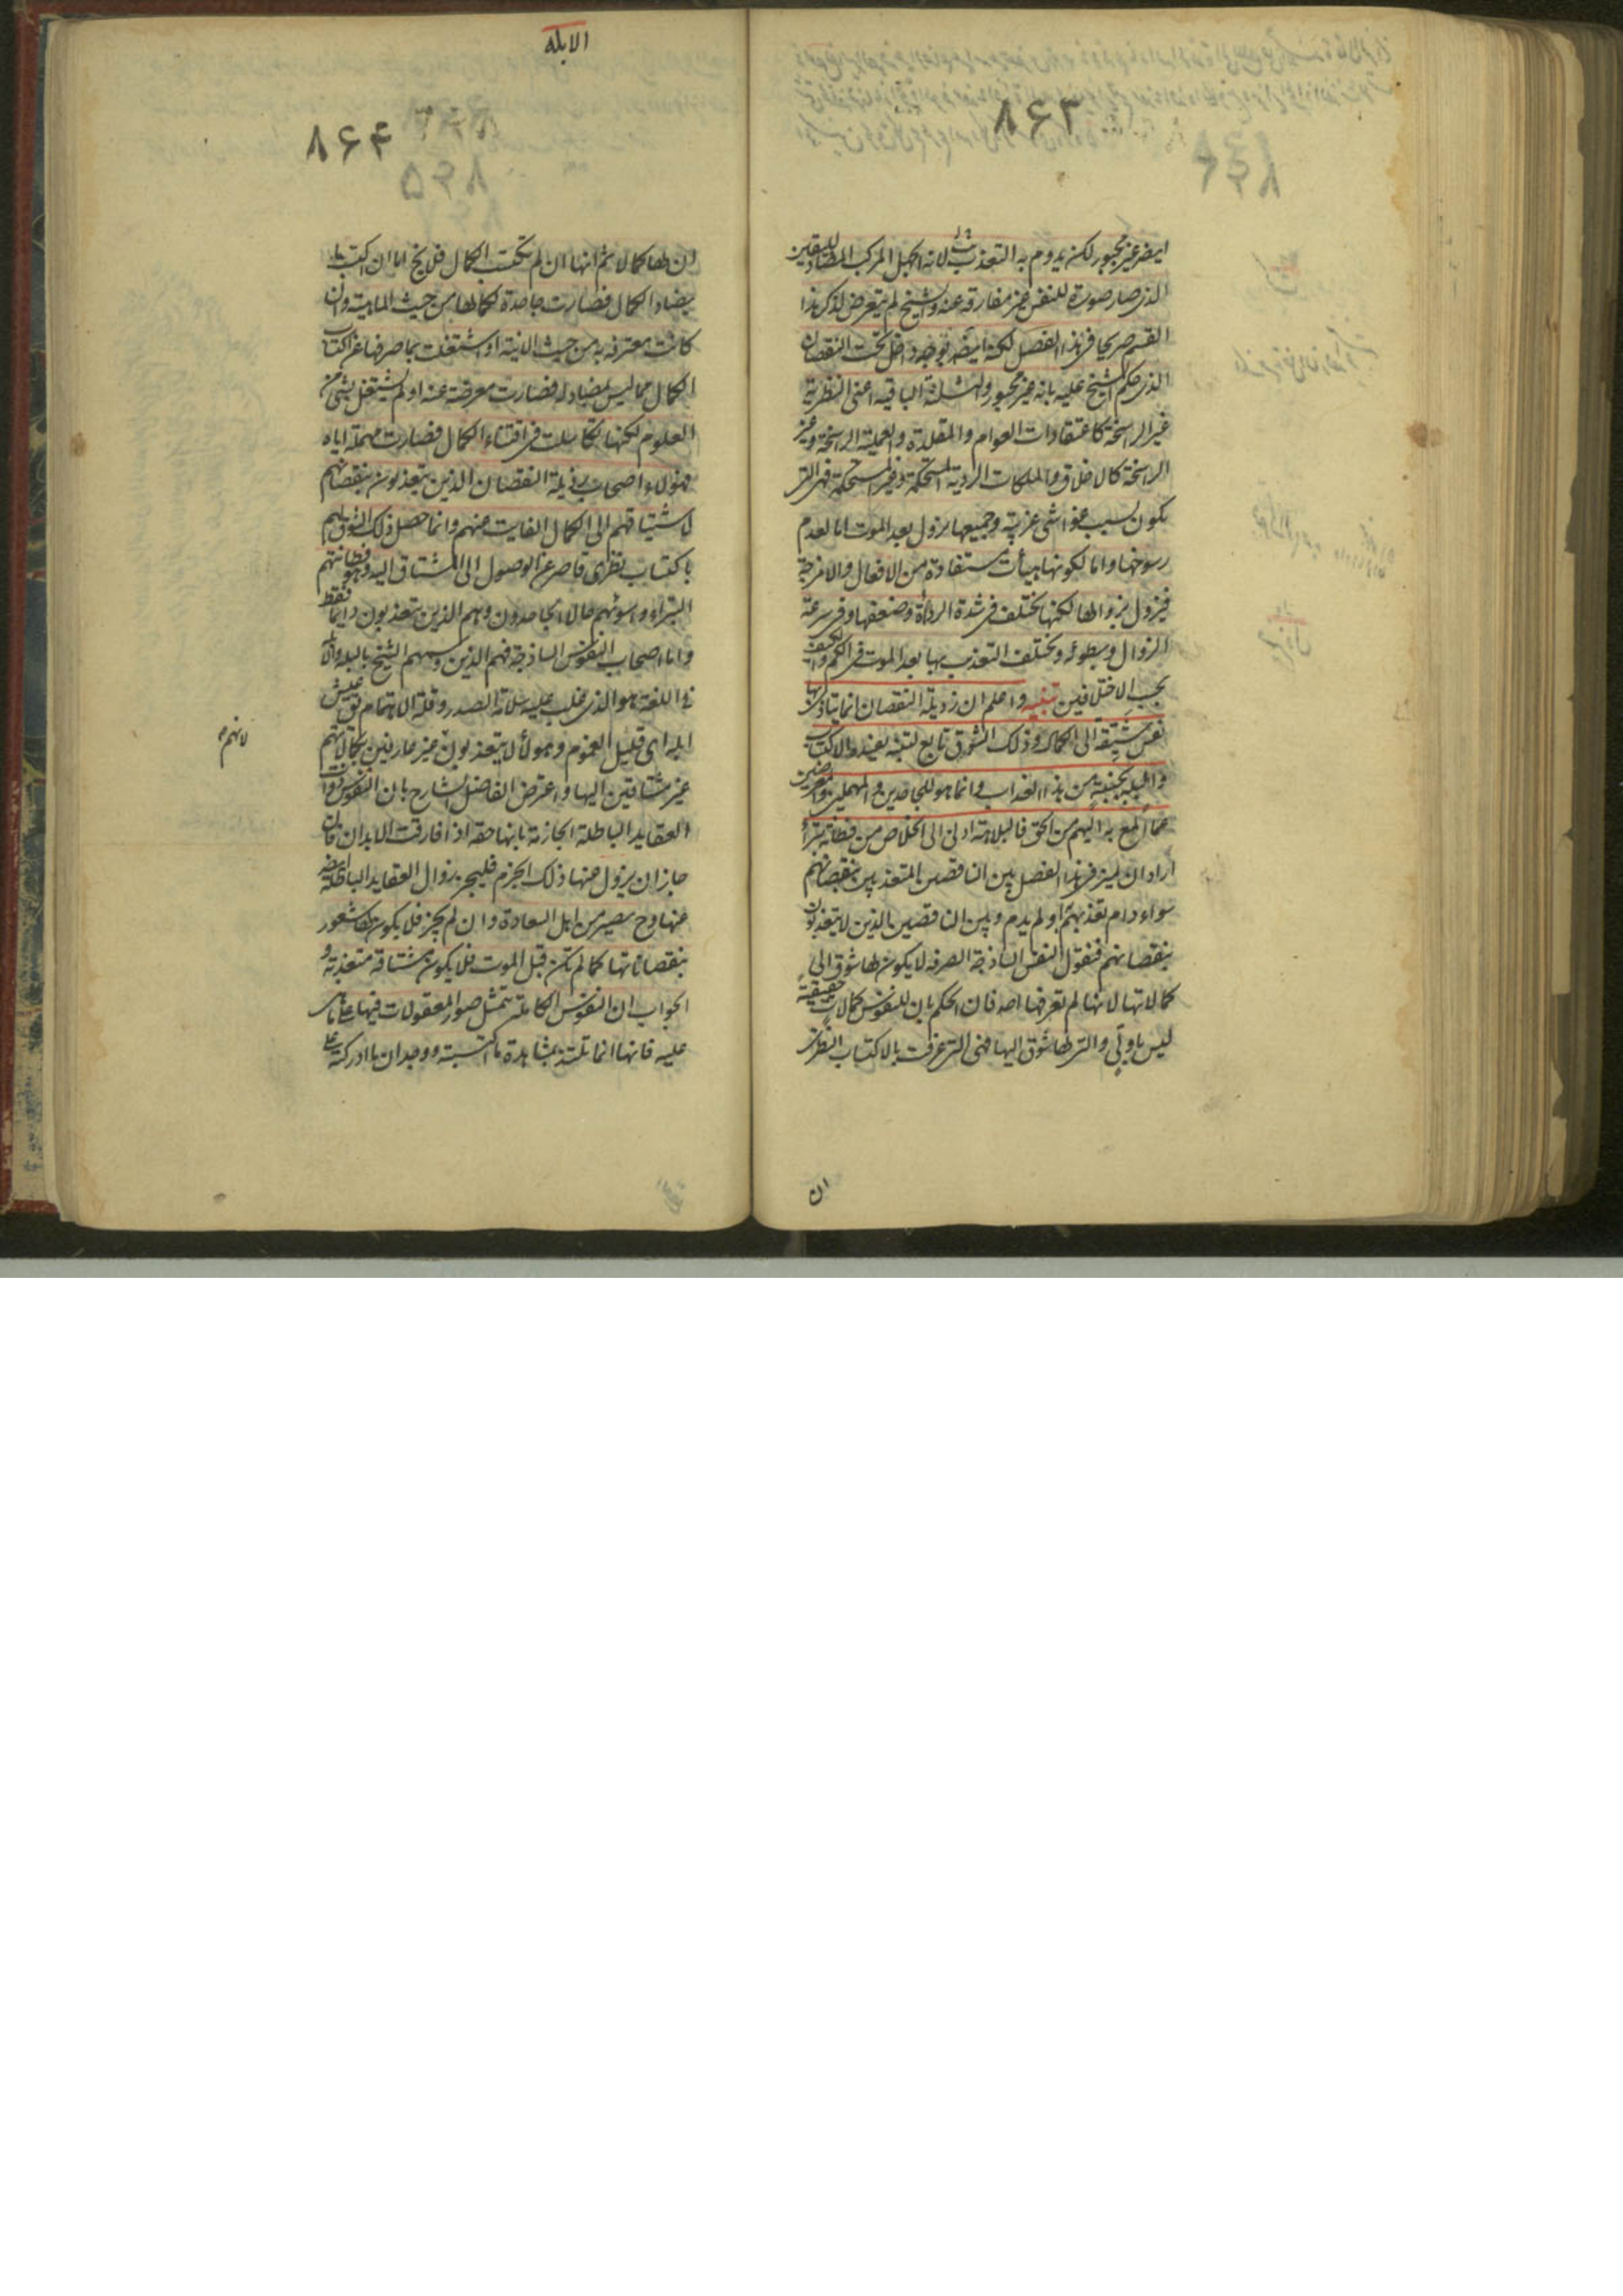 ۸۶۳
ايضر غير مجبور لكن يدوم به التعذيب لانه الجهل المركب المضاد لليقين
الذى صار صورة للنفس غير مفارقة عنه والشيخ لم يتعرض لذكر هذا
القسم صريحا فى هذا الفصل لكنه ايضر بوجه داخل تحت النقصان
الذى حكم الشيخ عليه بانه غير مجبور والثلثة الباقيه اعنى النظرية
غير الراسخة كاعتقادات العوام والمقلدة والعملية الراسخة وغير
الراسخة كالاخلاق والملكات الردية المستحكمة وغير المستحكمة فهى التى
يكون بسبب غواشى غريبة وجميعها يزول بعد الموت اما لعدم
رسوخها واما لكونها هيأت مستفادة من الافعال والامزجة
فيزول بزوالها لكنها يختلف فى شدة الرداءة وضعفها وفى سرعة
الزوال وبطوئه ويختلف التعذيب بها بعد الموت فى الكم والكيف
بحسب الاختلافين تنبيه واعلم ان رذيلة النقصان انما يتاذى بها
نفس شيقة الى الكمال وذلك الشوق تابع لتنبه يفيده الاكتساب
والبله بجنبة من هذا العذاب وانما هو للجاحدين والمهملين والمعرضين
عما المع به اليهم من الحق فالبلاهة ادنى الى الخلاص من فطانة بتراء
اراد ان يميز فى هذا الفصل بين الناقصين المتعذبين بنقصانهم
سواء دام تعذبهم او لم يدم وبين الناقصين الذين لا يتعذبون
بنقصانهم فنقول النفس الساذجة الصرفه لا يكون لها شوق الى
كمالاتها لانها لم تعرفها اصلا فان الحكم بان للنفوس كمالات حقيقية
ليس باولى والتى لها شوق اليها فهى التى عرفت بالاكتساب النظرى
ان
الابله
۸۶۴
ان لها كمالا ثم انها ان لم تكتسب الكمال فلا يخ اما ان اكتسبت ما
يضاد الكمال فصارت جاحدة لكمالها من حيث الماهية وان
كانت معترفه به من حيث الانية او اشتغلت بما صرفها عن اكتساب
الكمال مما ليس بمضاد له فصارت معرضة عنه او لم يشتغل بشئ من
العلوم لكنها تكاسلت فى اقتناء الكمال فصارت مهملة اياه
فهؤلاء اصحاب رذيلة النقصان الذين يتعذبون بنقصانهم
لاشتياقهم الى الكمال الفايت منهم وانما حصل ذلك الشوق لهم
باكتساب نظرى قاصر عن الوصول الى المشتاق اليه وهو فطانتهم
البتراء واسوئهم حالا الجاحدون وهم الذين يتعذبون دايما فقط
واما اصحاب النفوس الساذجة فهم الذين وسمهم الشيخ بالبله والابله
فى اللغة هو الذى غلب عليه سلامة الصدر وقلة الاهتمام يق عيش
ابله اى قليل الغموم وهؤلاء لا يتعذبون غير عارفين بكمالاتهم
لانهم
غير مشتاقين اليها واعترض الفاضل الشارح بان النفوس ذوات
العقايد الباطلة الجازمة بانها حقه اذا فارقت الابدان فان
جاز ان يزول عنها ذلك الجزم فليجز زوال العقايد الباطلة ايضر
عنها وح يصير من اهل السعادة وان لم يجز فلا يكون لها شعور
بنقصاناتها كما لم تكن قبل الموت فلا يكون مشتاقة متعذبة و
الجواب ان النفوس الكاملة يتمثل صور المعقولات فيها على ما هى
عليه فانها انما تلتذ بمشاهدة ما اكتسبته ووجدان ما ادركته على